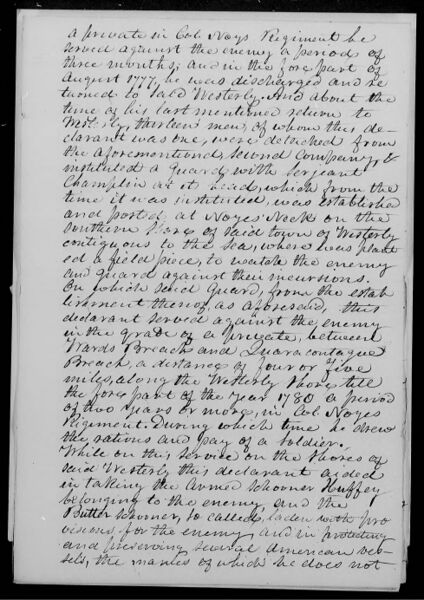 a private in Col Noys Regiment he
served against the enemy a period of
three months; and in the fore part of
August 1777, he was discharged and re
turned to said Westerly. And about the
time of his last mentioned return to
Westerly, thirteen men, of whom this de-
clarant was one, were detached from
the aforementioned second Company, &
instituted a Guard, with Serjeant
Champlin at it head, which from the
time it was instituted, was established
and posted, at Noyes Neck on the
southern Shore of said town of Westerly
contiguous to the sea, where was plant
ed a field piece, to watch the enemy
and guard against their incursions.
On which said Guard, from the estab
lishment thereof, as aforesaid, this
declarant served against the enemy
in the grade of a private, between
Wards Breach and Quaracontague
Breach, a distance of four or five
miles, along the Westerly Shore, till
the fore part of the Year 1780 a period
of two Years or more, in Col Noyes
Regiment. During which time he drew
the rations and pay of a soldier.
While on this service on the shores of
said Westerly this declarant aided
in taking the Armed schooner Huffey
belonging to the enemy, and the
Butter schooner, so called, laden with pro
visions for the enemy, and in protecting
and preserving several American ves-
sels, the names of which he does not